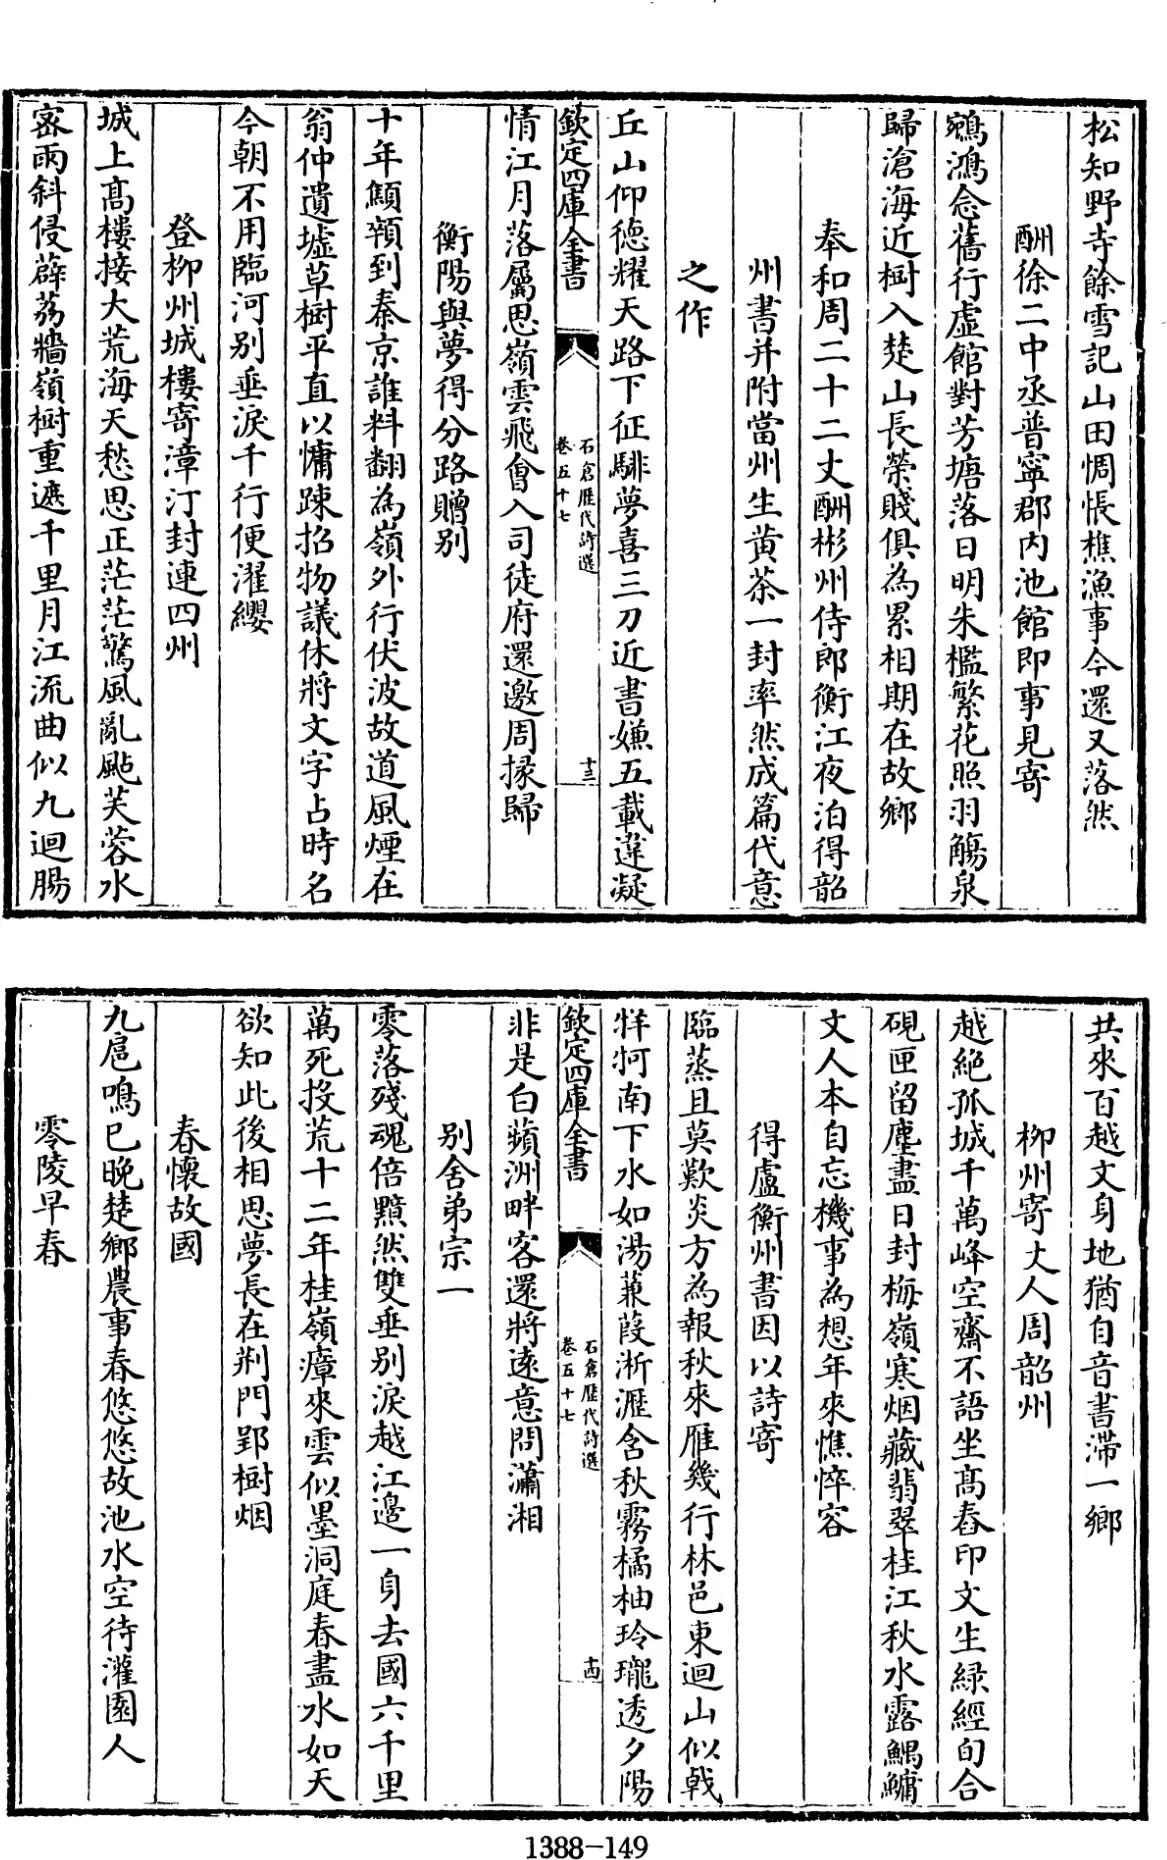 松知野寺餘雪記山田惆悵樵漁事今還又落然
酬徐二中丞普寧郡内池館即事見寄
鵷鴻念舊行虛館對芳塘落日明朱檻繁花照羽觴泉
歸滄海近樹入楚山長榮賤俱為累相期在故鄉
奉和周二十二丈酬彬州侍郎衡江夜泊得韶
州書并附當州生黄茶一封率然成篇代意
之作
丘山仰德耀天路下征騑夢喜三刀近書嫌五載違凝
欽定四庫全書
石倉歷代詩選
卷五十七
十三
情江月落屬思嶺雲飛㑹入司徒府還邀周掾歸
衡陽與夢得分路贈别
十年顦顇到秦京誰料翻為嶺外行伏波故道風煙在
翁仲遺墟草樹平直以慵踈招物議休將文字占時名
今朝不用臨河别垂淚千行便濯纓
登栁州城樓寄漳汀封連四州
城上髙樓接大荒海天愁思正茫茫驚風亂颭芙蓉水
宻雨斜侵薜荔牆嶺樹重遮千里月江流曲似九迴腸
共來百越文身地猶自音書滯一鄉
栁州寄丈人周韶州
越絶孤城千萬峰空齋不語坐髙舂印文生緑經旬合
硯匣留塵盡日封梅嶺寒烟藏翡翠桂江秋水露鰅鱅
丈人本自忘機事為想年來憔悴容
得盧衡州書因以詩寄
臨蒸且莫歎炎方為報秋來雁幾行林邑東迴山似戟
牂牁南下水如湯蒹葭淅瀝含秋霧橘柚玲瓏透夕陽
欽定四庫全書
石倉歷代詩選
卷五十七
十四
非是白蘋洲畔客還將遠意問瀟湘
别舍弟宗一
零落殘魂倍黯然雙垂别淚越江邊一身去國六千里
萬死投荒十二年桂嶺瘴來雲似墨洞庭春盡水如天
欲知此後相思夢長在荆門郢樹烟
春懐故國
九扈鳴已晚楚鄉農事春悠悠故池水空待灌園人
零陵早春
1388-149